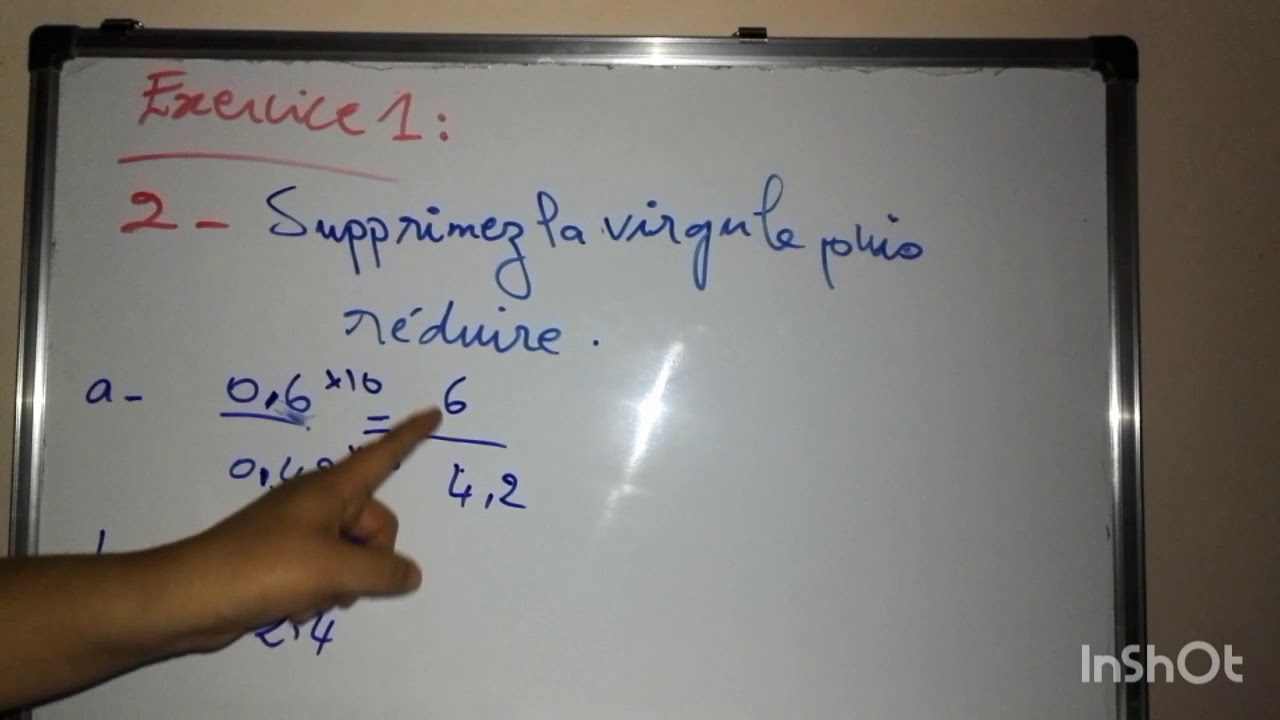 Exercice 1 :
2 - Supprimez la virgule puis
réduire .
a - 0,6 ×10 = 6
0,42 4,2
2,4
InShOt